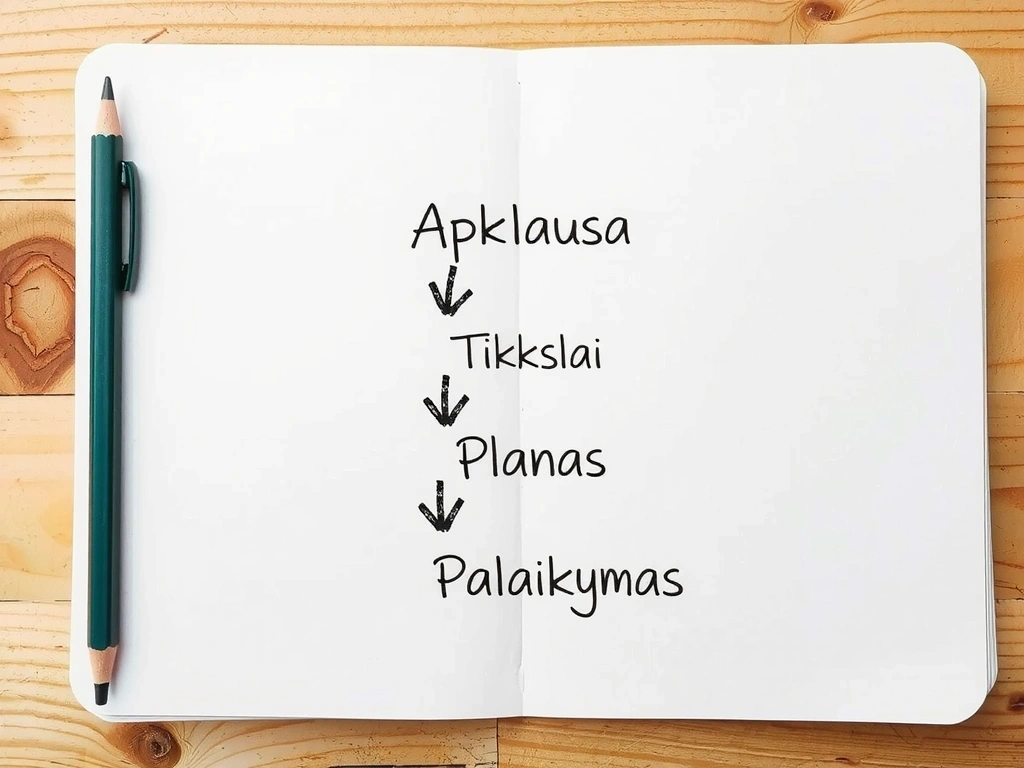 Apklausa
Tikkslai
Planas
Palaikymas